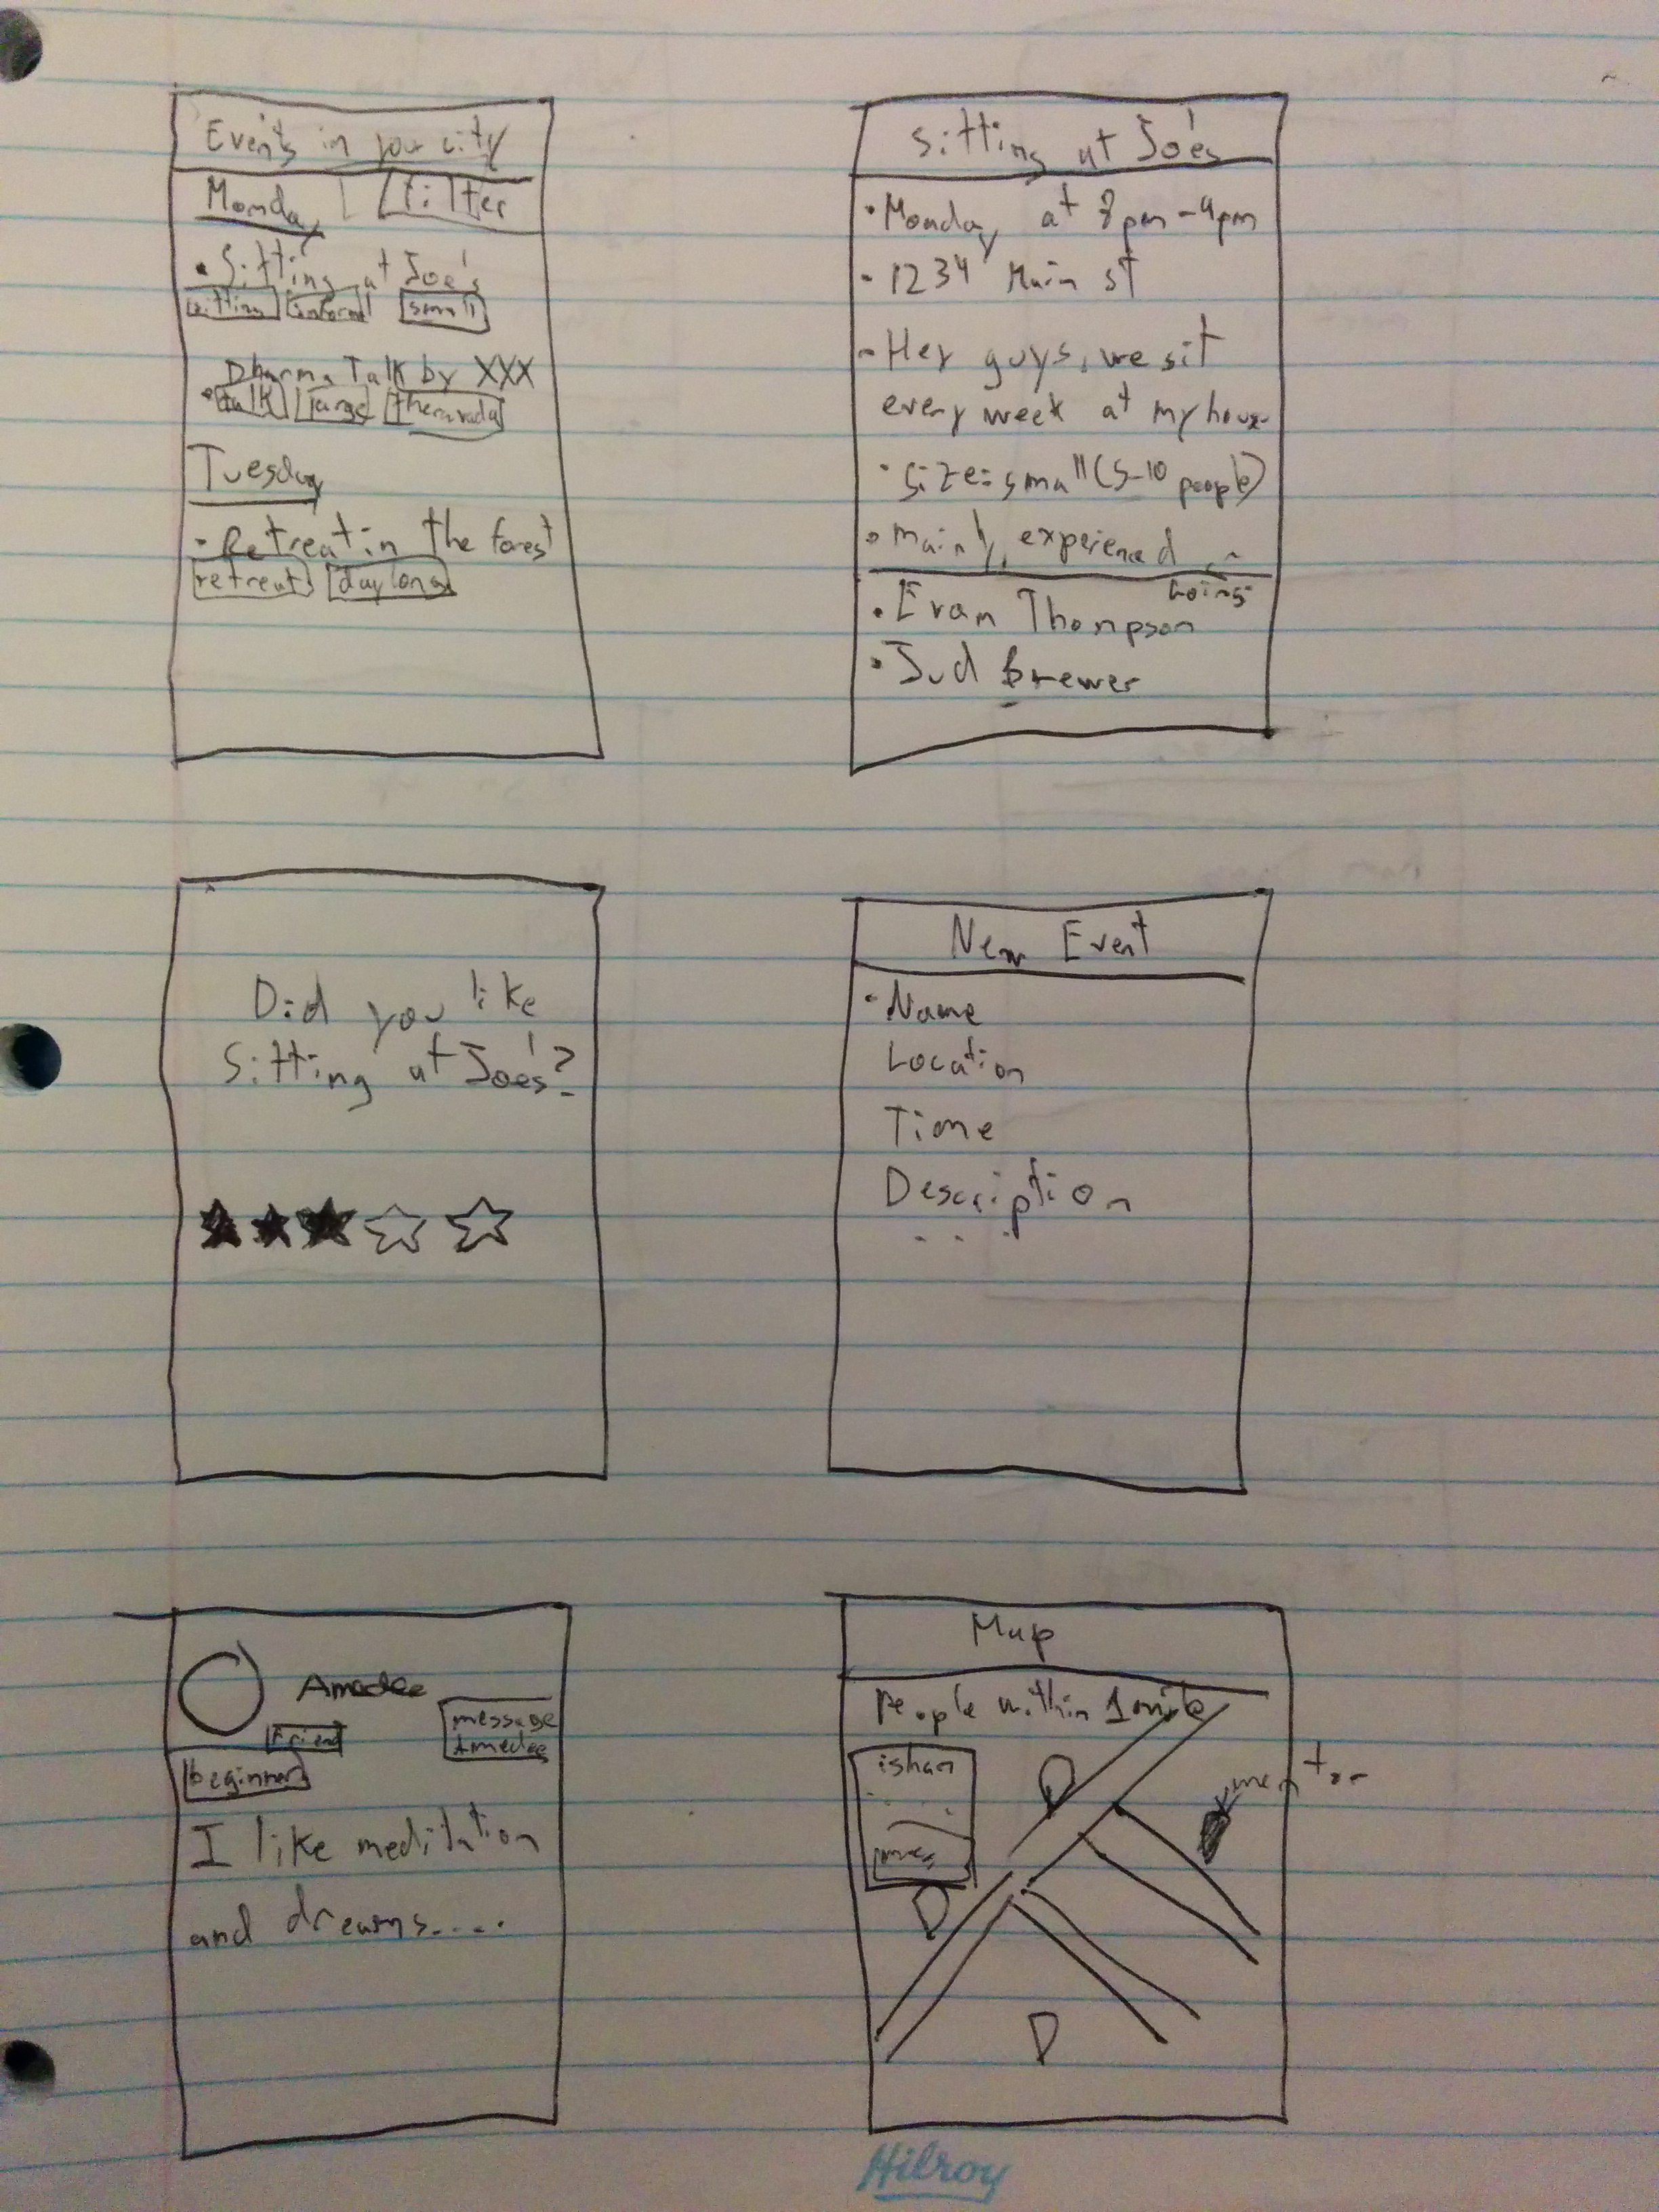 Events in your city
Monday
filter
• Sitting at Joe's
sitting informal small
Dharma Talk by XXX
• talk large theravada
Tuesday
• Retreat in the forest
retreat daylong
Sitting at Joe's
• Monday at 8pm - 9pm
• 1234 Main st
- Hey guys, we sit
every week at my house
• size: small (5-10 people)
• mainly experienced
Going
• Evan Thompson
• Jud Brewer
Did you like
Sitting at Joe's?
New Event
• Name
Location
Time
Description
. . .
Amedee
Friend
message
Amedee
beginner
I like meditation
and dreams.....
Map
People within 1 mile
ishan
mentor
Hilroy